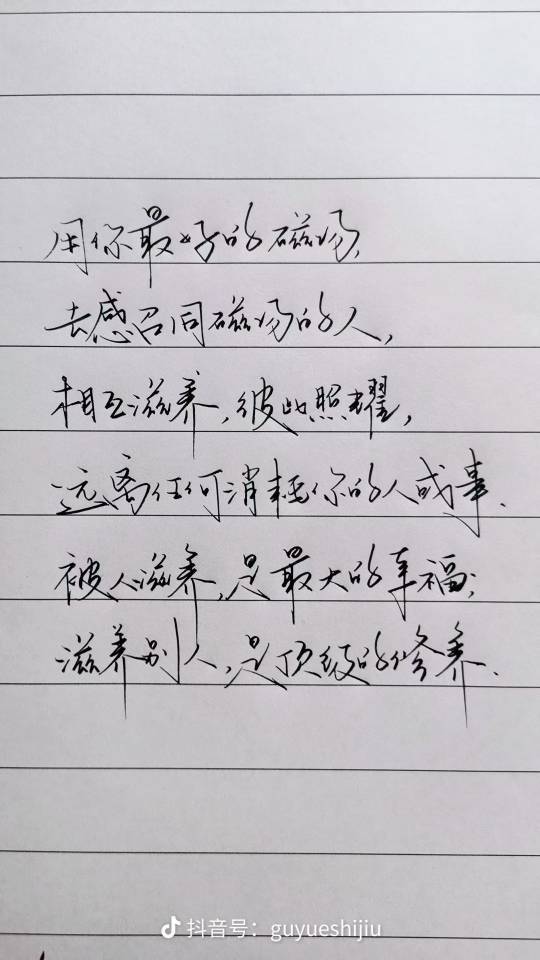 用你最好的磁场,
去感召同磁场的人,
相互滋养,彼此照耀,
远离任何消耗你的人或事.
被人滋养,是最大的幸福;
滋养别人,是顶级的修养.
抖音号：guyueshijiu